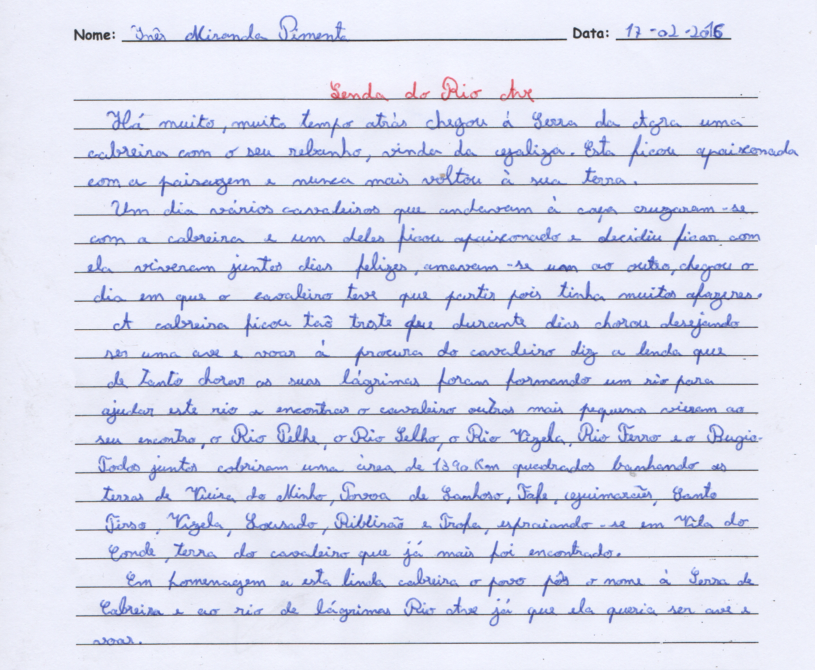 Nome: Inês Miranda Pimenta Data: 17-02-2016
Lenda do Rio Ave
Há muito, muito tempo atrás chegou à Serra da Agra uma
cabreira com o seu rebanho, vinda da galiza. Esta ficou apaixonada
com a paisagem e nunca mais voltou à sua terra.
Um dia vários cavaleiros que andavam à caça cruzaram-se
com a cabreira e um deles ficou apaixonado e decidiu ficar com
ela viveram juntos dias felizes, amavam-se um ao outro, chegou o
dia em que o cavaleiro teve que partir pois tinha muitos afazeres.
A cabreira ficou taõ triste que durante dias chorou desejando
ser uma ave e voar à procura do cavaleiro diz a lenda que
de tanto chorar as suas lágrimas foram formando um rio para
ajudar este rio a encontrar o cavaleiro outros mais pequenos vieram ao
seu encontro, o Rio Pelhe, o Rio Selho, o Rio Vizela, Rio Ferro e o Bugio.
Todos juntos cobriram uma área de 1390 Km quadrados banhando as
terras de Vieira do Minho, Povoa de Lanhoso, Fafe, guimarães, Santo
Tirso, Vizela, Lousado, Ribeirão e Trofa, espraiando-se em Vila do
Conde, terra do cavaleiro que já mais foi encontrado.
Em homenagem a esta linda cabreira o povo pôs o nome à Serra de
Cabreira e ao rio de lágrimas Rio Ave já que ela queria ser ave e
voar.